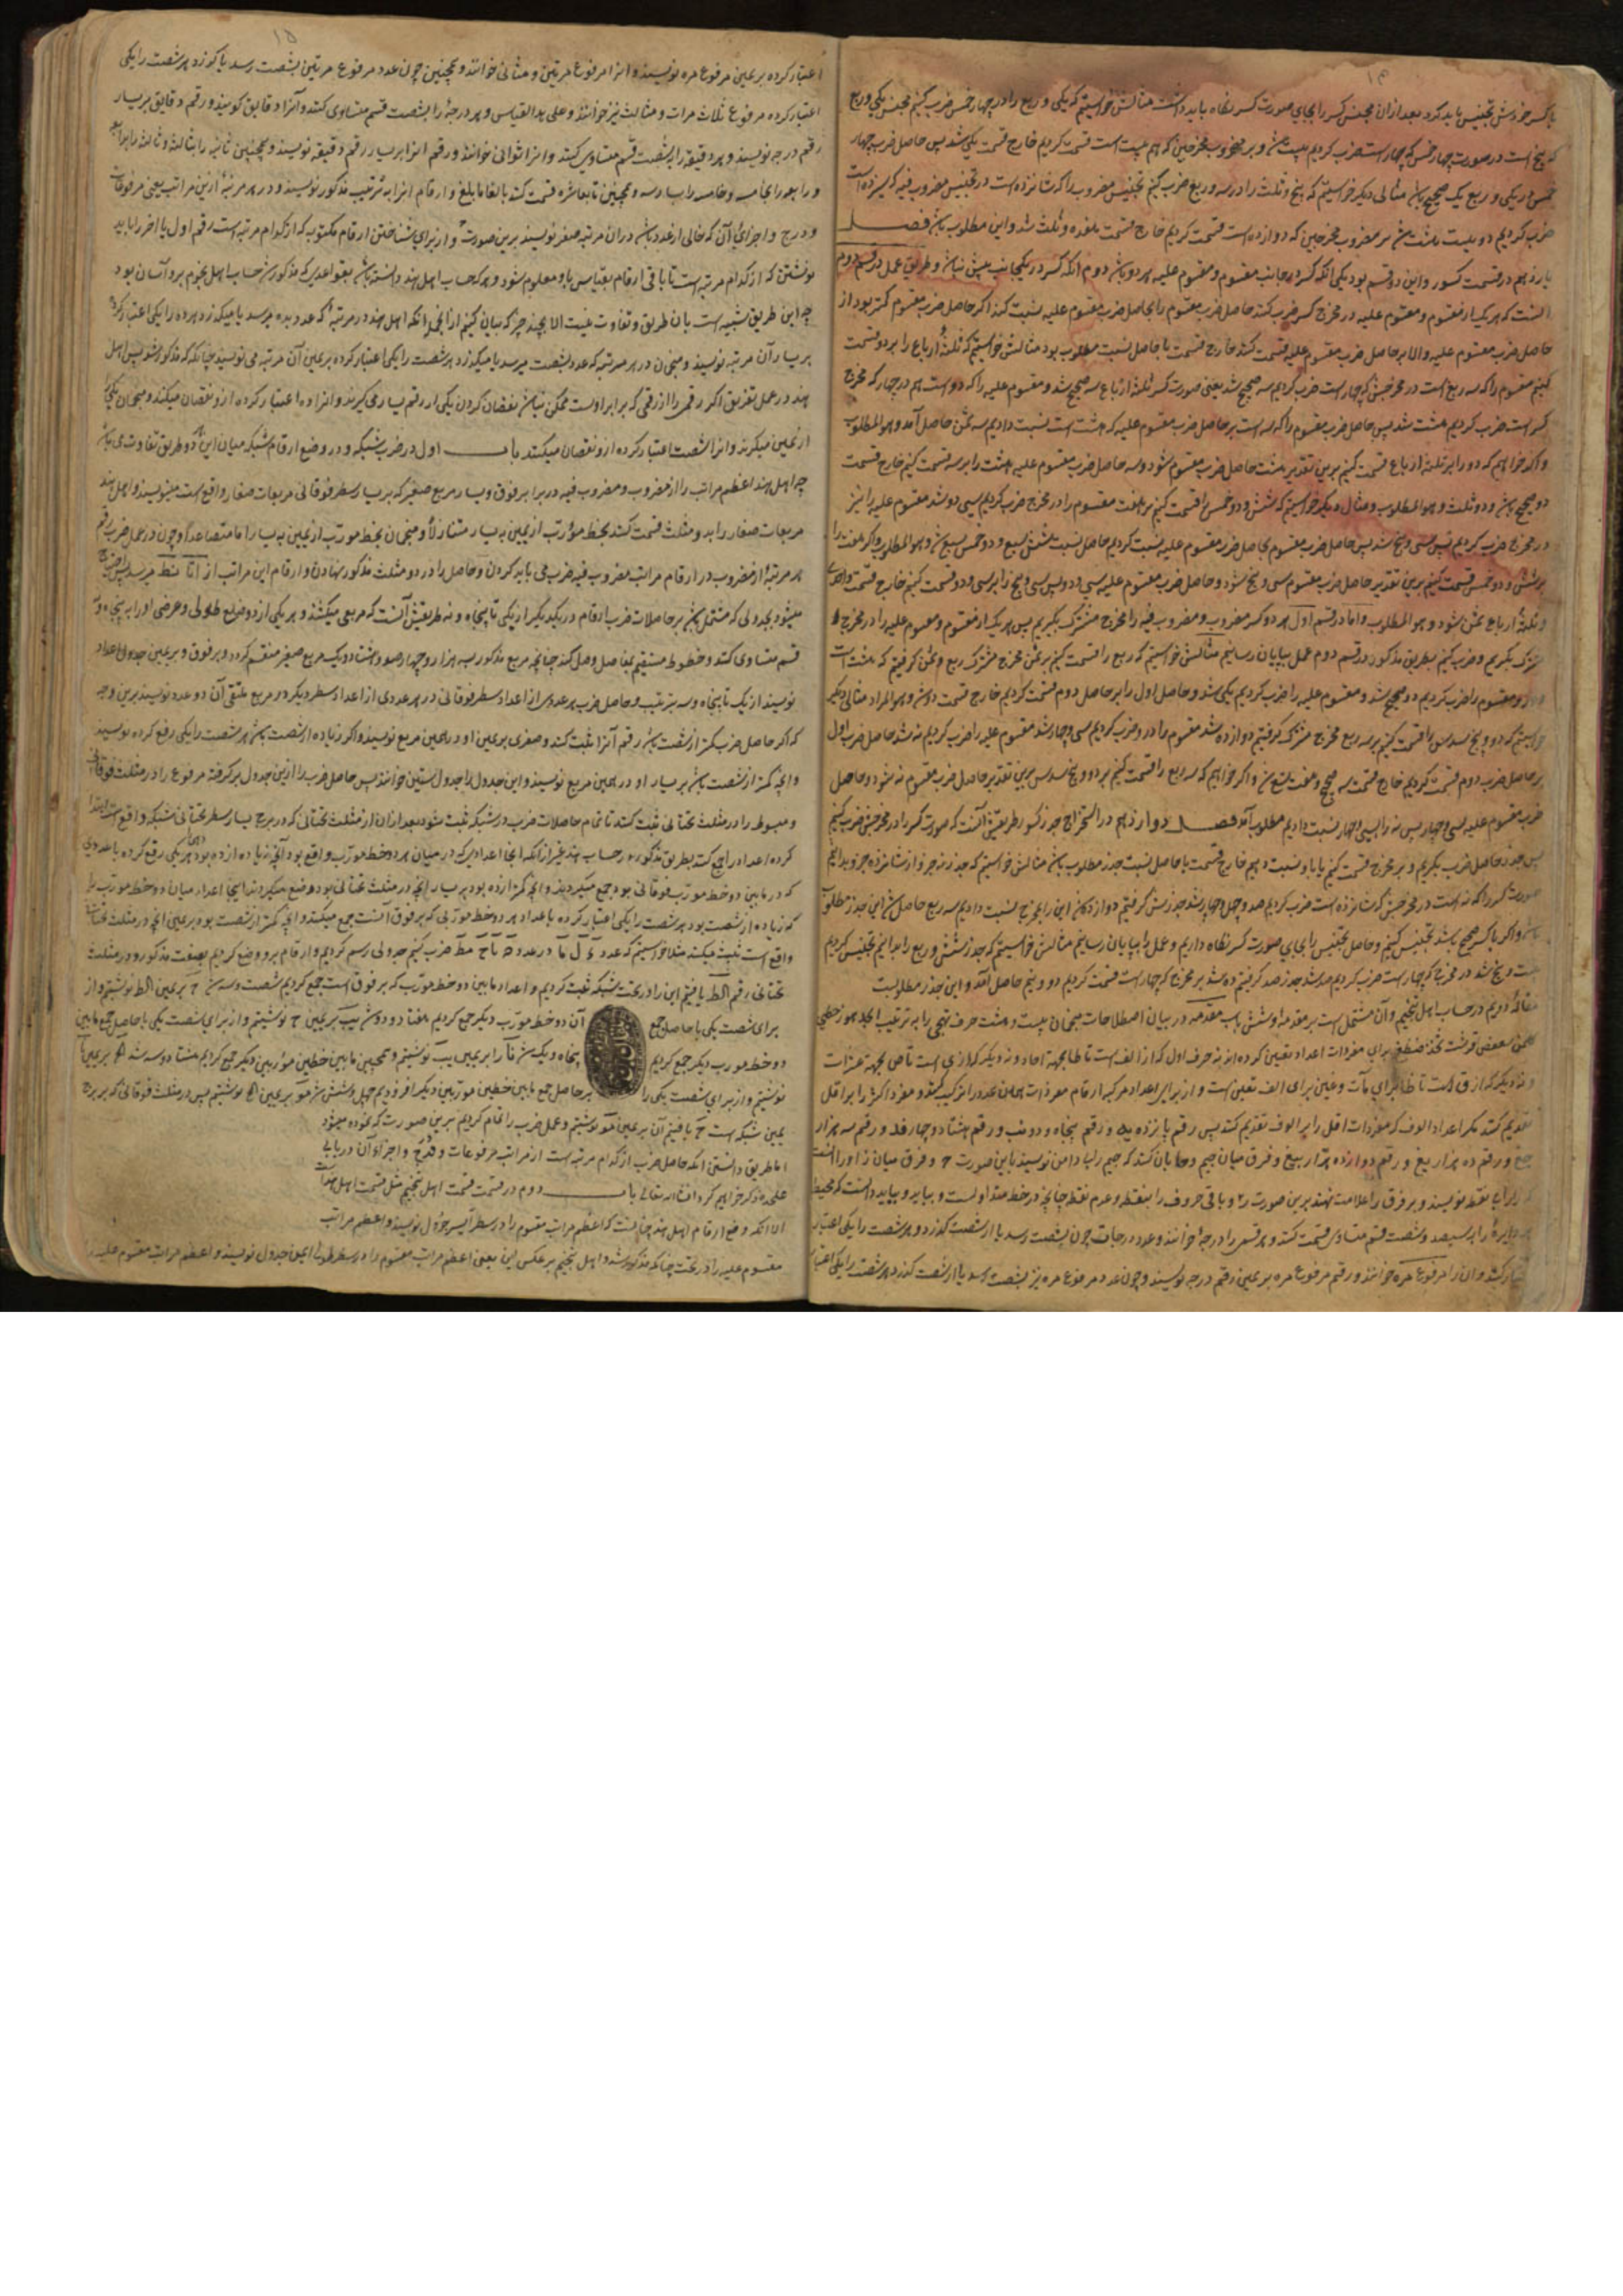 ۱۴
با کسر خودش تجنیس باید کرد بعد ازان مجنس کسر را بجای صورت کسر نگاه باید داشت مثالش خواستیم که یکی و ربع را در چهار خمس ضرب کنیم مجنس یکی و ربع
که پنج است در صورت چهار خمس که چهار است ضرب کردیم بیست شد و بر مضروب مخرجین که هم بیست است قسمت کردیم خارج قسمت یکی شد پس حاصل ضرب چهار
خمس در یکی و ربع یک صحیح باشد مثالی دیگر خواستیم که پنج و ثلث را در سه و ربع ضرب کنیم تجنیس مضروب را که شانزده است در تجنیس مضروب فیه که سیزده است
ضرب کردیم دویست هشت شد بر مضروب مخرجین که دوازده است قسمت کردیم خارج قسمت هفده و ثلث شد و این مطلوب باشد فصل
یازدهم در قسمت کسور و این دو قسم بود یکی آنکه کسر در جانب مقسوم و مقسوم علیه هر دو باشد دوم آنکه کسر در یکجانب بیش نباشد و طریق عمل در قسم دوم
آنست که هر یک از مقسوم و مقسوم علیه در مخرج کسر ضرب کنند حاصل ضرب مقسوم را بحاصل ضرب مقسوم علیه نسبت کنند اگر حاصل ضرب مقسوم کمتر بود از
حاصل ضرب مقسوم علیه والا بر حاصل ضرب مقسوم علیه قسمت کنند خارج قسمت یا حاصل نسبت مطلوب بود مثالش خواستیم که ثلثة ارباع را بر دو قسمت
کنیم مقسوم را که سه ربع است در مخرجش که چهار است ضرب کردیم سه صحیح شد یعنی صورت کسر ثلثة ارباع سه صحیح شد و مقسوم علیه را که دو است هم در چهار که مخرج
کسر است ضرب کردیم هشت شد پس حاصل ضرب مقسوم را که سه است بر حاصل ضرب مقسوم علیه که هشت است نسبت دادیم سه ثمن حاصل آمد و هو المطلوب
و اگر خواهیم که دو را بر ثلثة ارباع قسمت کنیم برین تقدیر هشت حاصل ضرب مقسوم شود و سه حاصل ضرب مقسوم علیه هشت را بر سه قسمت کنیم خارج قسمت
دو صحیح باشد و دو ثلث و هو المطلوب و مثال دیگر خواستیم که شش و دو خمس را قسمت کنیم بر هفت مقسوم را در مخرج ضرب کردیم سی دو شد مقسوم علیه را نیز
در مخرج ضرب کردیم سی و پنج شد پس حاصل ضرب مقسوم بحاصل ضرب مقسوم علیه نسبت کردیم حاصل نسبت شش سبع و دو خمس سبع شد و هو المطلوب و اگر هفت را
بر شش و دو خمس قسمت کنیم برین تقدیر حاصل ضرب مقسوم سی و پنج شود و حاصل ضرب مقسوم علیه سی و دو پس سی و پنج را بر سی و دو قسمت کنیم خارج قسمت واحدی
و ثلثة ارباع ثمن شود و هو المطلوب واما در قسم اول هر دو کسر مضروب و مضروب فیه را مخرج مشترک بگیریم پس هر یک از مقسوم و مقسوم علیه را در مخرج
مشترک بگیریم و ضرب کنیم بطریق مذکور در قسم دوم عمل بپایان رسانیم مثالش خواستیم که ربع را قسمت کنیم بر ثمن مخرج مشترک ربع و ثمن گرفتیم که هشت است
و مقسوم را ضرب کردیم دو صحیح شد و مقسوم علیه را ضرب کردیم یکی شد و حاصل اول را بر حاصل دوم قسمت کردیم خارج قسمت دو شد و هو المراد مثالی دیگر
خواستیم که دو و پنج سدس را قسمت کنیم بر سه ربع مخرج مشترک گرفتیم دوازده شد مقسوم را درو ضرب کردیم سی و چهار شد مقسوم علیه را ضرب کردیم نه شد حاصل ضرب اول
بر حاصل ضرب دوم قسمت کردیم خارج قسمت سه صحیح و هفت تسع شد و اگر خواهیم که سه ربع را قسمت کنیم بر دو و پنج سدس برین تقدیر حاصل ضرب مقسوم نه شود و حاصل
ضرب مقسوم علیه سی و چهار پس نه را بسی و چهار نسبت دادیم مطلوب آمد فصل دوازدهم در استخراج جذر کسور طریقش آنست که صورت کسر را در مخرجش ضرب کنیم
پس جذر حاصل ضرب بگیریم و بر مخرج قسمت کنیم یا باو نسبت دهیم خارج قسمت یا حاصل نسبت جذر مطلوب باشد مثالش خواستیم که جذر نه جزو از شانزده جزو بدانیم
صورت کسر را که نه است در مخرجش که شانزده است ضرب کردیم صد و چهل و چهار شد جذرش گرفتیم دوازده شد این را بمخرج نسبت دادیم سه ربع حاصل شد این جذر مطلوب
باشد و اگر با کسر صحیح باشد تجنیس کنیم و حاصل تجنیس را بجای صورت کسر نگاه داریم و عمل را بپایان رسانیم مثالش خواستیم که جذر شش و ربع را بدانیم تجنیس کردیم
بیست و پنج شد در مخرج که چهار است ضرب کردیم صد شد جذر صد گرفتیم ده شد بر مخرج که چهار است قسمت کردیم دو و نیم حاصل آمد و این جذر مطلوبست
مقاله دویم در حساب اهل تنجیم و آن مشتمل است بر مقدمه و شش باب مقدمه در بیان اصطلاحات منجمان بیست و هشت حرف تهجی را به ترتیب ابجد هوز حطی
کلمن سعفص قرشت ثخذ ضظغ برای مفردات اعداد تعیین کرده اند نه حرف اول که از الف است تا طا بجهة احاد و نه دیگر که از ی است تا ص بجهة عشرات
و نه دیگر که از ق است تا ظا برای مآت و غین برای الف تعلین است و از برای اعداد مرکبه ارقام مفردات همان عدد را ترکیب کنند و مفرد اکثر را بر اقل
تقدیم کنند مگر اعداد الوف که مفردات اقل را بر الوف تقدیم کنند پس رقم پانزده یه و رقم پنجاه و دو نب و رقم هشتاد و چهار فد و رقم سه هزار
جغ و رقم ده هزار یغ و رقم دوازده هزار یبغ و فرق میان جیم و حا بآن کنند که جیم را بی دامن نویسند باین صورت ح و فرق میان ز و را آنست
که را برای نقطه نویسند و بر فرق را علامت نهند برین صورت ر۲ و باقی حروف را بنقطه و عدم نقطه چنانچه در خط متداولست و بباید دانست که محیط
هر دایره را بسیصد و شصت قسم متساوی قسمت کنند و هر قسمی را درجه خوانند و عدد درجات چون بشصت رسد یا از شصت گذرد هر شصت را یکی اعتبار
اعتبار کنند و آن را مرفوع مره خوانند و رقم مرفوع مره بر یمین رقم درجه نویسند و چون عدد مرفوع مره نیز بشصت رسد یا از شصت گذرد هر شصت را یکی اعتبار
۱۵
اعتبار کرده بر یمین مرفوع مره نویسند و آنرا مرفوع مرتین و مثانی خوانند و همچنین چون عدد مرفوع مرتین بشصت رسد یا گذرد هر شصت را یکی
اعتبار کرده مرفوع ثلاث مرات و مثالث نیز خوانند و علی هذا القیاس و هر درجه را بشصت قسم متساوی کنند و آنرا دقایق گویند و رقم دقایق بر یسار
رقم درجه نویسند و هر دقیقه را بشصت قسم متساوی کنند و آنرا ثوانی خوانند و رقم آنرا بر یسار رقم دقیقه نویسند و همچنین ثانیه را بثالثه و ثالثه را برابعه
و رابعه را بخامسه و خامسه را بسادسه و همچنین تا بعاشره قسمت کنند بالغا ما بلغ و ارقام آنرا به ترتیب مذکور نویسند و در هر مرتبه ازین مراتب یعنی مرفوعات
و درج و اجزای آن که خالی از عدد باشد دران مرتبه صفر نویسند برین صورت و از برای شناختن ارقام مکتوبه که از کدام مرتبه است رقم اول یا آخر را باید
نوشتن که از کدام مرتبه است تا باقی ارقام بقیاس باو معلوم شود و هر که حساب اهل هند دانسته باشد بقواعدی که مذکور شد حساب اهل نجوم برو آسان بود
چه این طریق شبیه است بآن طریق و تفاوت نیست الا بچند چیز که بیان کنیم ازانجمله آنکه اهل هند در مرتبه که عدد بده میرسد یا میگذرد هر ده را یکی اعتبار کرده
بر یسار آن مرتبه نویسند و منجمان در هر مرتبه که عدد بشصت میرسد یا میگذرد هر شصت را یکی اعتبار کرده بر یمین آن مرتبه می نویسند چنانکه مذکور شد پس اهل
هند در عمل تفریق اگر رقمی را از رقمی که برابر اوست ممکن نباشد نقصان کردن یکی از رقم یسار می گیرند و آنرا ده اعتبار کرده ازو نقصان میکنند و منجمان یکی
از یمین میگیرند و آنرا شصت اعتبار کرده ازو نقصان میکنند باب اول در ضرب شبکه و در وضع ارقام شبکه میان این دو طریق تفاوت می باشد
چه اهل هند اعظم مراتب را از مضروب و مضروب فیه در برابر فوق و یسار مربع صغیر که بر یسار سطر فوقانی مربعات صغار واقع است مینویسند و اهل هند
مربعات صغار را بدو مثلث قسمت کنند بخط مؤرب از یمین به یسار متنازلاً و منجمان بخط مورب از یمین به یسار اما متصاعداً و چون در عمل ضرب رقم
هر مرتبه از مضروب در ارقام مراتب مضروب فیه ضرب می باید کردن و حاصل را در دو مثلث مذکور نهادن و ارقام این مراتب از ا تا نط میرسد پس احتیاج
میشود بجدولی که مشتمل باشد بر حاصلات ضرب ارقام در یکدیگر از یکی تا پنجاه و نه طریقش آنست که مربعی میکشند و هر یکی از دو ضلع طولی و عرضی او را به پنجاه و نه
قسم متساوی کنند و خطوط مستقیم بفاصل وصل کنند چنانچه مربع مذکور بسه هزار و چهارصد و هشتاد و یک مربع صغیر منقسم گردد و بر فوق و بر یمین جدول اعداد
نویسند از یک تا پنجاه و نه بترتیب و حاصل ضرب هر عددی از اعداد سطر فوقانی در هر عددی از اعداد سطر دیگر در مربع ملتقی آن دو عدد نویسند برین وجه
که اگر حاصل ضرب کمتر از شصت باشد رقم آنرا ثبت کنند و صفری بر یمین او در همین مربع نویسند و اگر زیاده از شصت باشد هر شصت را یکی رفع کرده نویسند
و آنچه کمتر از شصت باشد بر یسار او در همین مربع نویسند و این جدول را جدول ستینی خوانند پس حاصل ضرب را ازین جدول بر گرفته مرفوع را در مثلث فوقانی
و مبسوط را در مثلث تحتانی ثبت کنند تا تمام حاصلات ضرب در شبکه ثبت شود بعد ازان از مثلث تحتانی که در برج یسار سطر تحتانی شبکه واقع است ابتدا
کرده اعداد را جمع کنند بطریق مذکور در حساب هند غیر از آنکه آنجا اعدادی که در میان هر دو خط مورب واقع بود آنچه زیاده از ده بود هر ده یکی رفع کرده با عددی
که در مابین دو خط مورب فوقانی بود جمع میکردند و آنچه کمتر از ده بود بر یسار آنچه در مثلث تحتانی بود وضع میکردند اینجا اعداد میان دو خط مورب را
که زیاده از شصت بود هر شصت را یکی اعتبار کرده با عداد هر دو خط مورب که بر فوق آنست جمع میکنند و آنچه کمتر از شصت بود بر یمین آنچه در مثلث تحتانی
واقع است ثبت میکنند مثلا خواستیم که عدد ضرب کنیم جدولی رسم کردیم و ارقام برو وضع کردیم بصفت مذکور و در مثلث
تحتانی رقم الط یافتیم این را در تحت شبکه ثبت کردیم و اعداد مابین دو خط مورب که بر فوق است جمع کردیم شصت و سه شد ح بر یمین الط نوشتیم و از
برای شصت یکی با حاصل جمع آن دو خط مورب دیگر جمع کردیم هفتاد و دو شد یب بر یمین ح نوشتیم و از برای شصت یکی با حاصل جمع مابین
دو خط مورب دیگر جمع کردیم پنجاه و یک شد نا را بر یمین یب نوشتیم و همچنین مابین خطین موربین دیگر جمع کردیم هشتاد و سه شد بر یمین نا
نوشتیم و از برای شصت یکی را بر حاصل جمع مابین خطین موربین دیگر افزودیم چهل و شش شد مو بر یمین نوشتیم پس در مثلث فوقانی که بر برج
یمین شبکه است ح یافتیم آن بر یمین مو نوشتیم و عمل ضرب را تمام کردیم برین صورت که نموده میشود
اما طریق دانستن آنکه حاصل ضرب از کدام مرتبه است از مراتب مرفوعات و درج و اجزاء آن در بابی
علیحده ذکر خواهیم کرد انشاء الله تعالی باب دوم در قسمت قسمت اهل تنجیم مثل قسمت اهل هند است
الا آنکه وضع ارقام اهل هند چنانست که اعظم مراتب مقسوم را در سطر ایسر جدول نویسند و اعظم مراتب
مقسوم علیه را در تحت چنانکه مذکور شد و اهل تنجیم بر عکس این یعنی اعظم مراتب مقسوم را در سطر طولی ایمن جدول نویسند و اعظم مراتب مقسوم علیه را